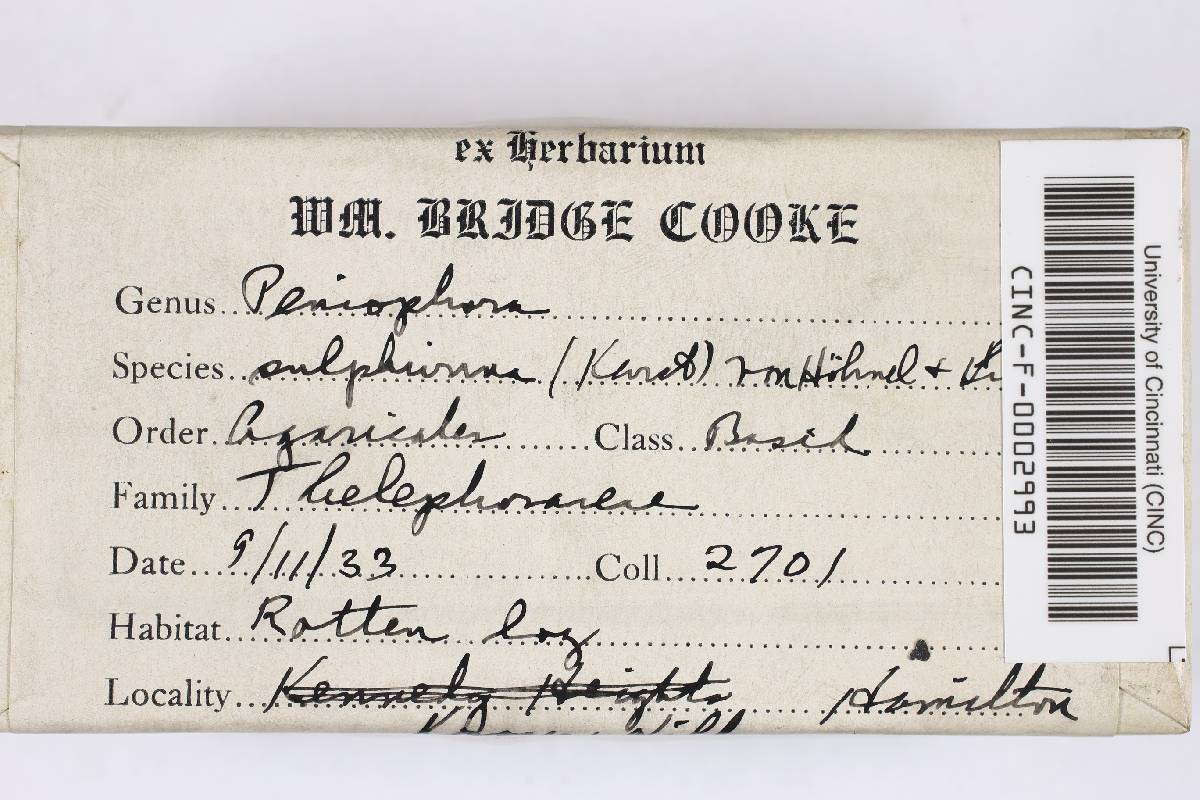 ex Herbarium
WM. BRIDGE COOKE
Genus Peniophora
Species sulphurina (Karst) von Höhnel &
Order Agaricales Class Basid
Family Thelephoraceae
Date 9/11/33 Coll 2701
Habitat Rotten log
Locality Kennedy Heights Hamilton
CINC-F-0002993
University of Cincinnati (CINC)